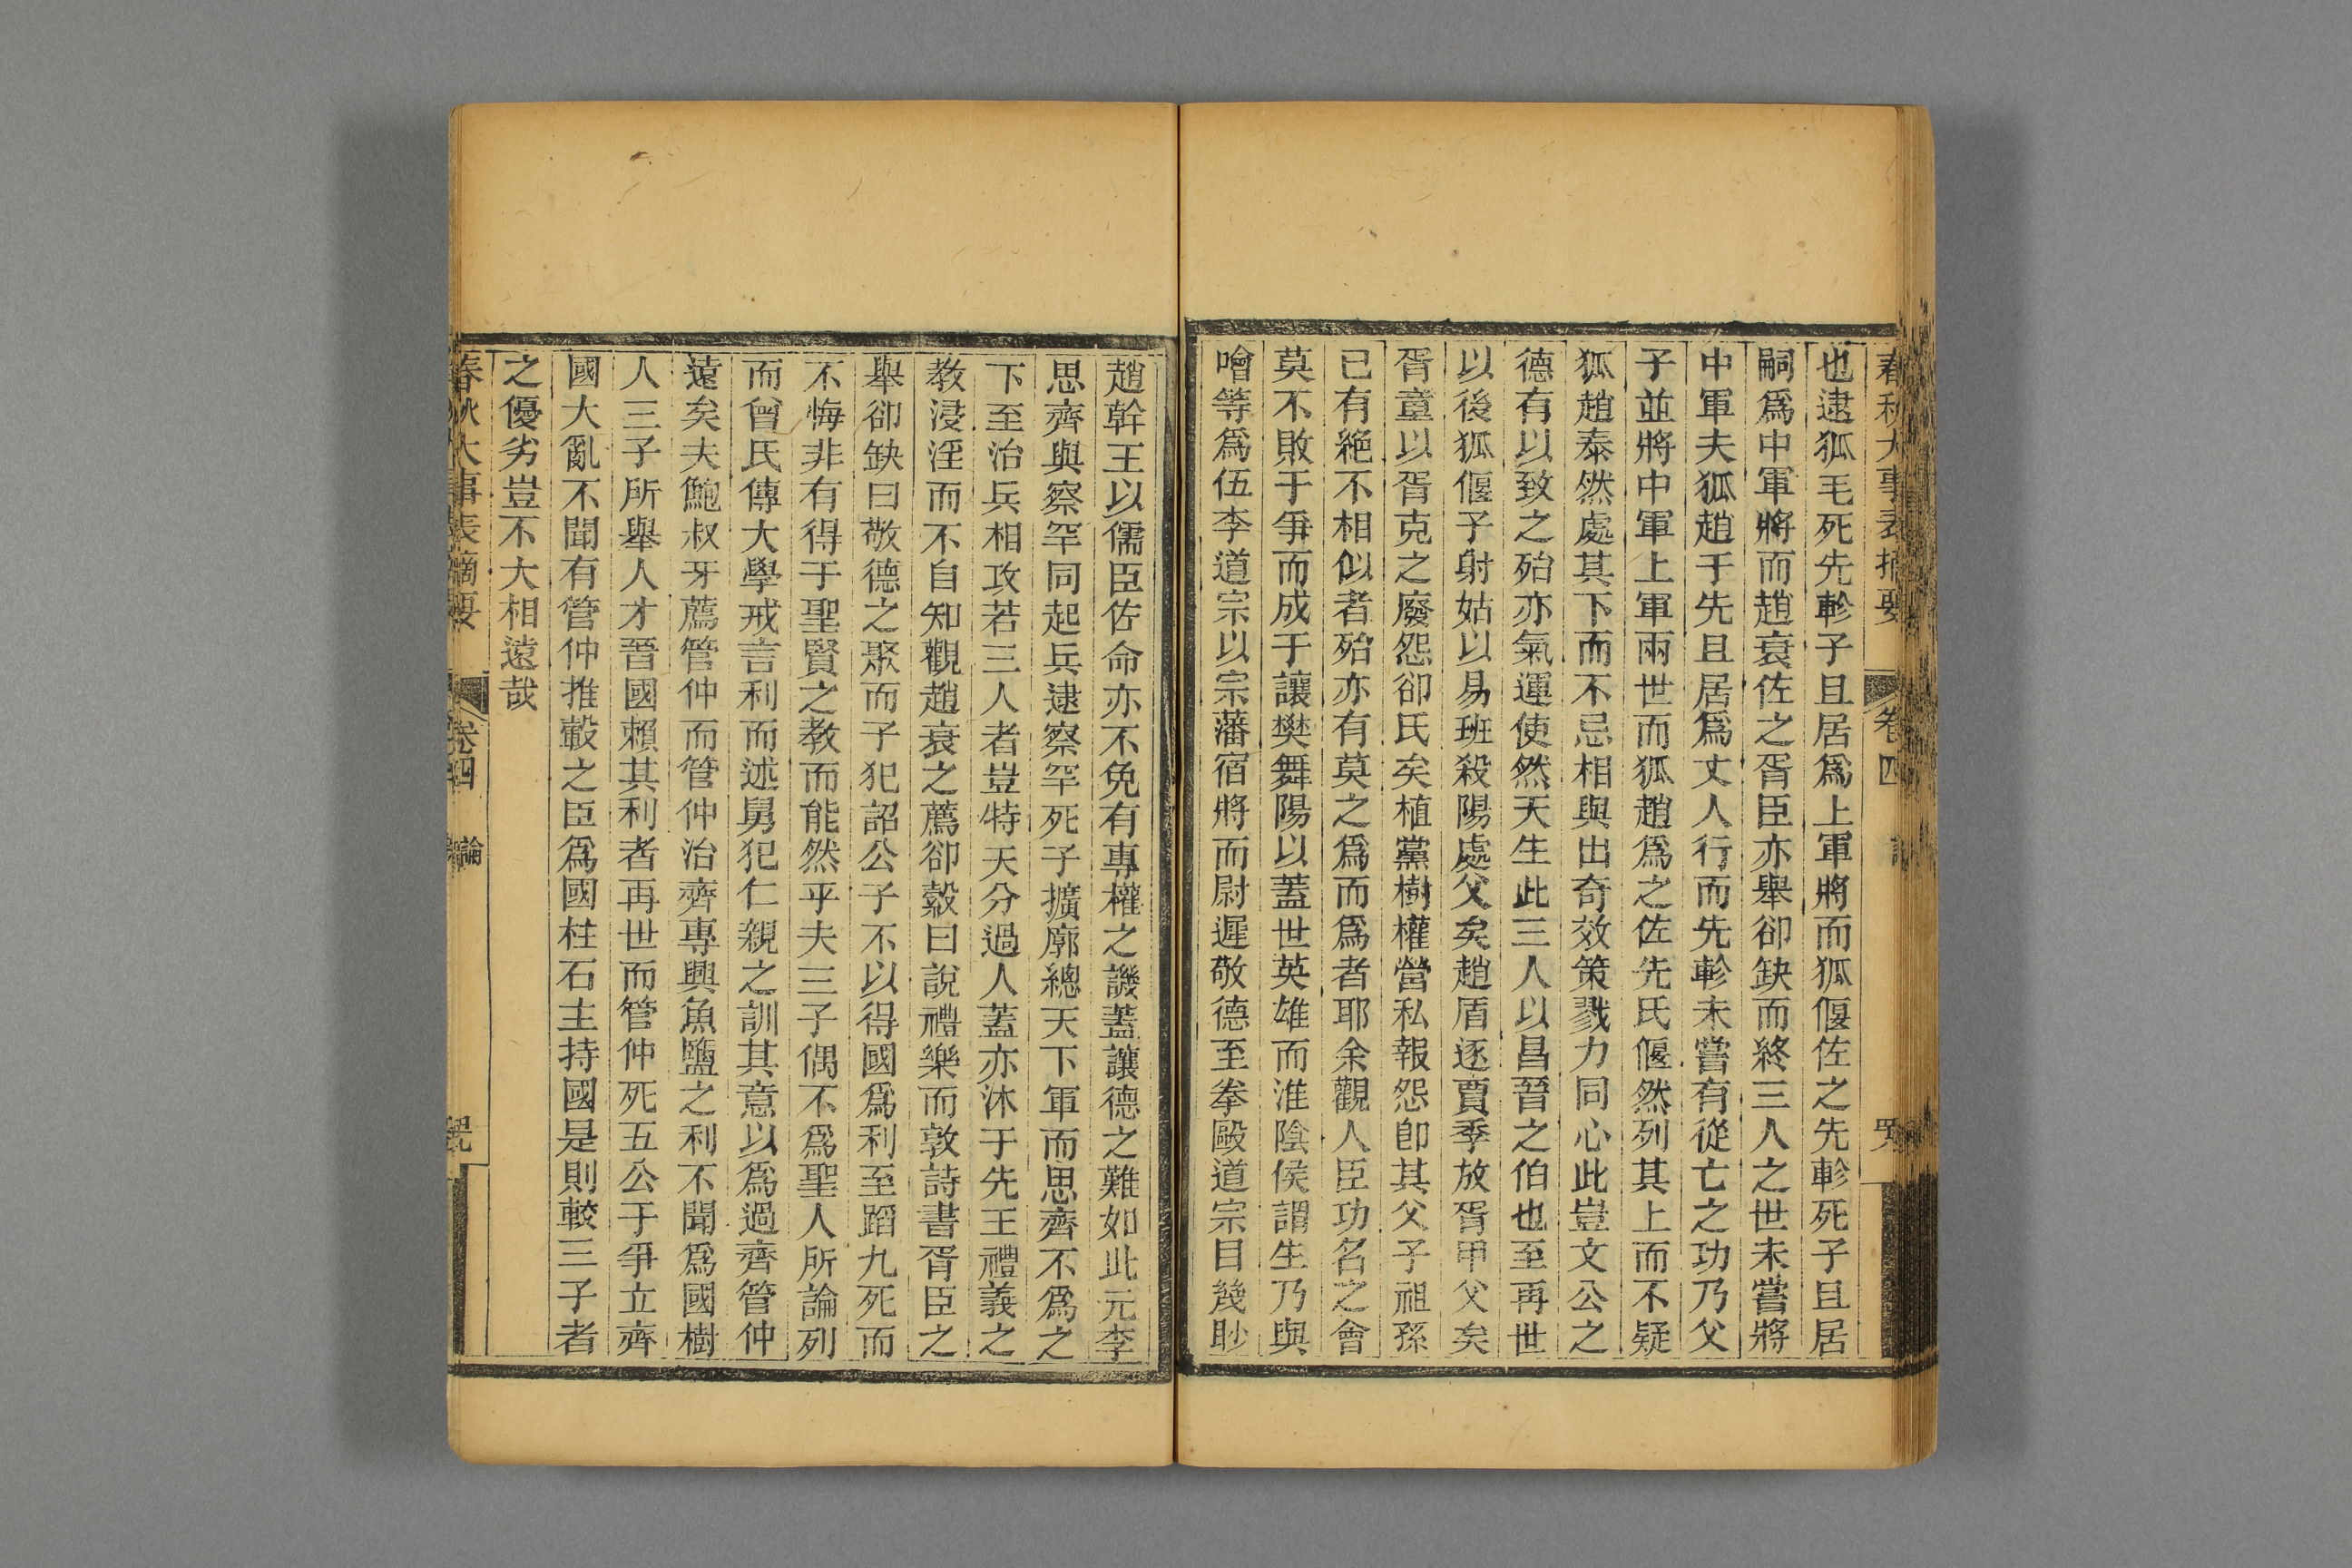 春秋大事表摘要 卷四 論
也逮狐毛死先軫子且居爲上軍將而狐偃佐之先軫死子且居
嗣爲中軍將而趙衰佐之胥臣亦舉卻缺而終三人之世未嘗將
中軍夫狐趙于先且居爲丈人行而先軫未嘗有從亡之功乃父
子並將中軍上軍兩世而狐趙爲之佐先氏偃然列其上而不疑
狐趙泰然處其下而不忌相與出奇效策戮力同心此豈文公之
德有以致之殆亦氣運使然天生此三人以昌晉之伯也至再世
以後狐偃子射姑以易班殺陽處父矣趙盾逐賈季放胥甲父矣
胥童以胥克之廢怨卻氏矣植黨樹權營私報怨卽其父子祖孫
已有絶不相似者殆亦有莫之爲而爲者耶余觀人臣功名之會
莫不敗于爭而成于讓樊舞陽以蓋世英雄而淮陰侯謂生乃與
噲等爲伍李道宗以宗藩宿將而尉遲敬德至拳毆道宗目幾眇
趙幹王以儒臣佐命亦不免有專權之譏蓋讓德之難如此元李
思齊與察罕同起兵逮察罕死子擴廓總天下軍而思齊不爲之
下至治兵相攻若三人者豈特天分過人蓋亦沐于先王禮義之
教浸淫而不自知觀趙衰之薦卻縠曰說禮樂而敦詩書胥臣之
舉卻缺曰敬德之聚而子犯詔公子不以得國爲利至蹈九死而
不悔非有得于聖賢之教而能然乎夫三子偶不爲聖人所論列
而曾氏傳大學戒言利而述舅犯仁親之訓其意以爲過齊管仲
遠矣夫鮑叔牙薦管仲而管仲治齊專興魚鹽之利不聞爲國樹
人三子所舉人才晉國賴其利者再世而管仲死五公子爭立齊
國大亂不聞有管仲推轂之臣爲國柱石主持國是則較三子者
之優劣豈不大相遠哉
春秋大事表摘要 卷四 論